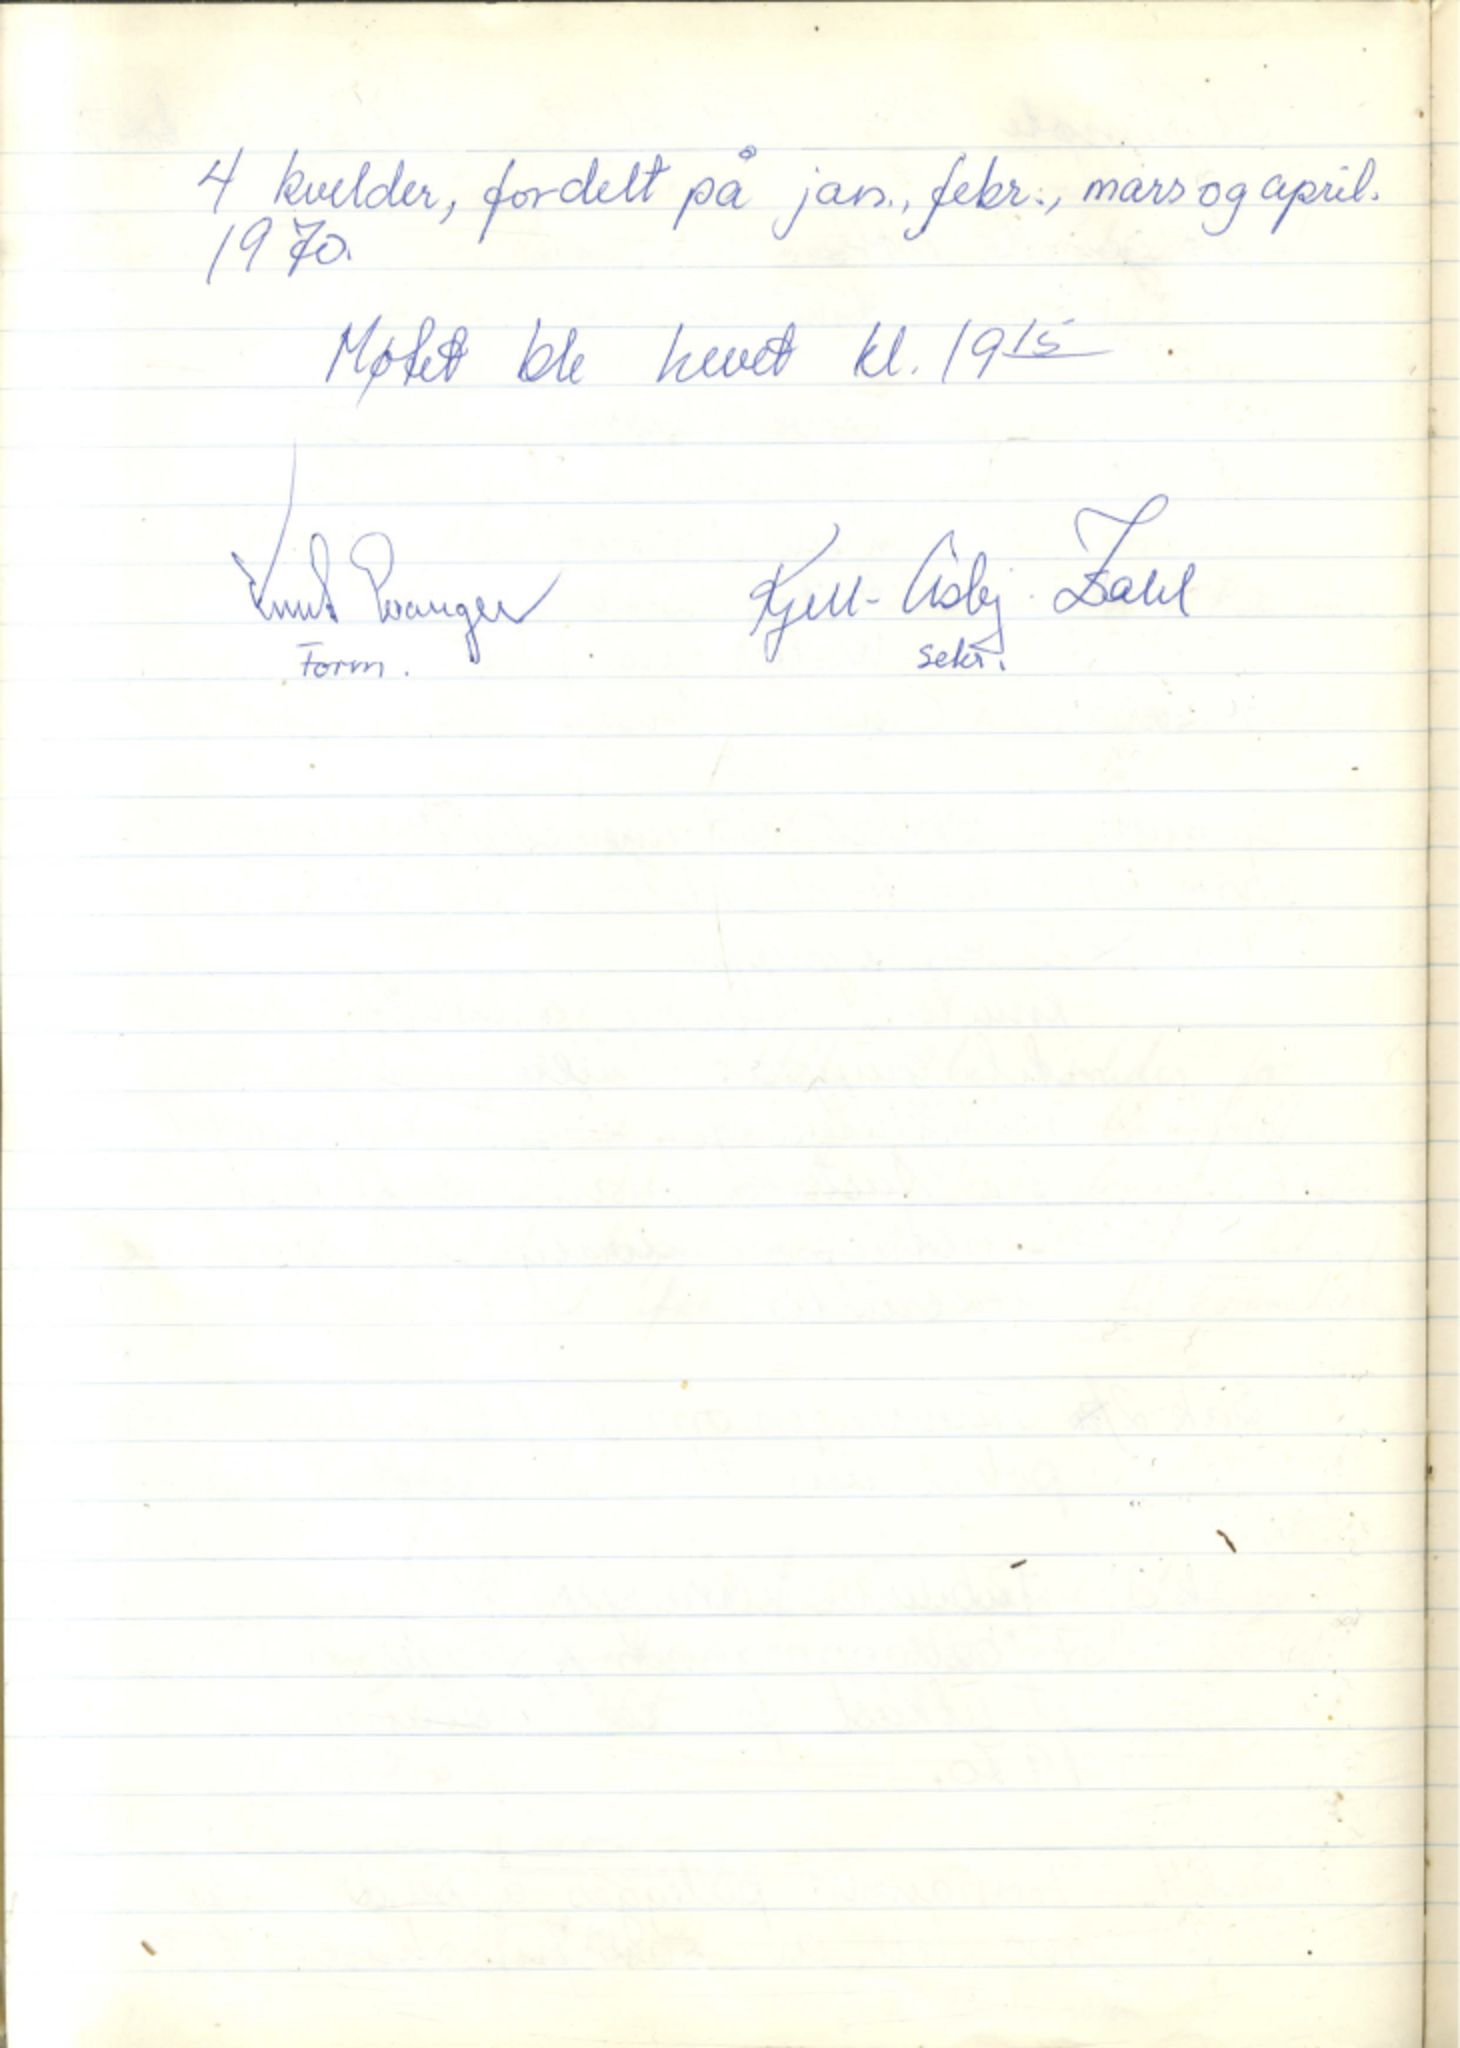 4 kvelder, fordelt på jan., febr., mars og april.
1970.
Møtet ble hevet kl. 19 15
Knut
Form.
Kjell- Asbj. Dahl
sekr.